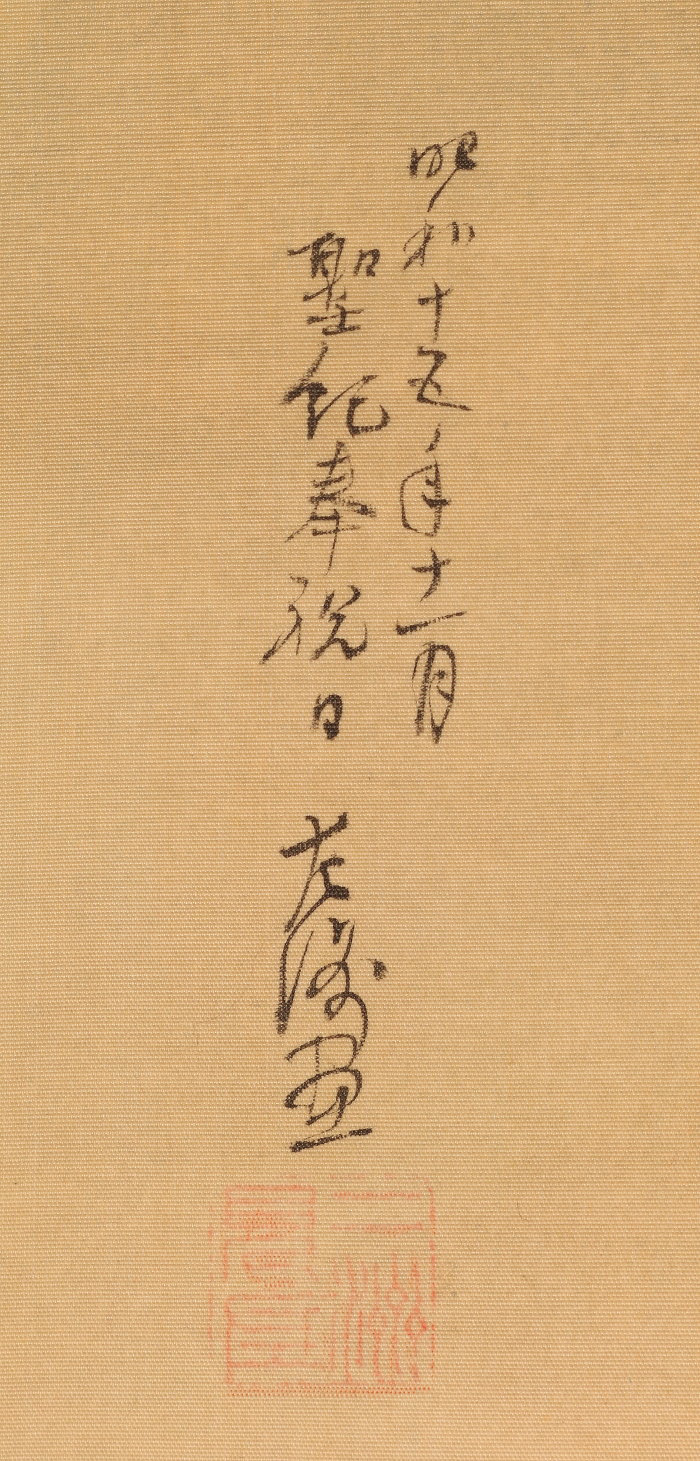 昭和十五年十一月
聖紀奉祝日
画